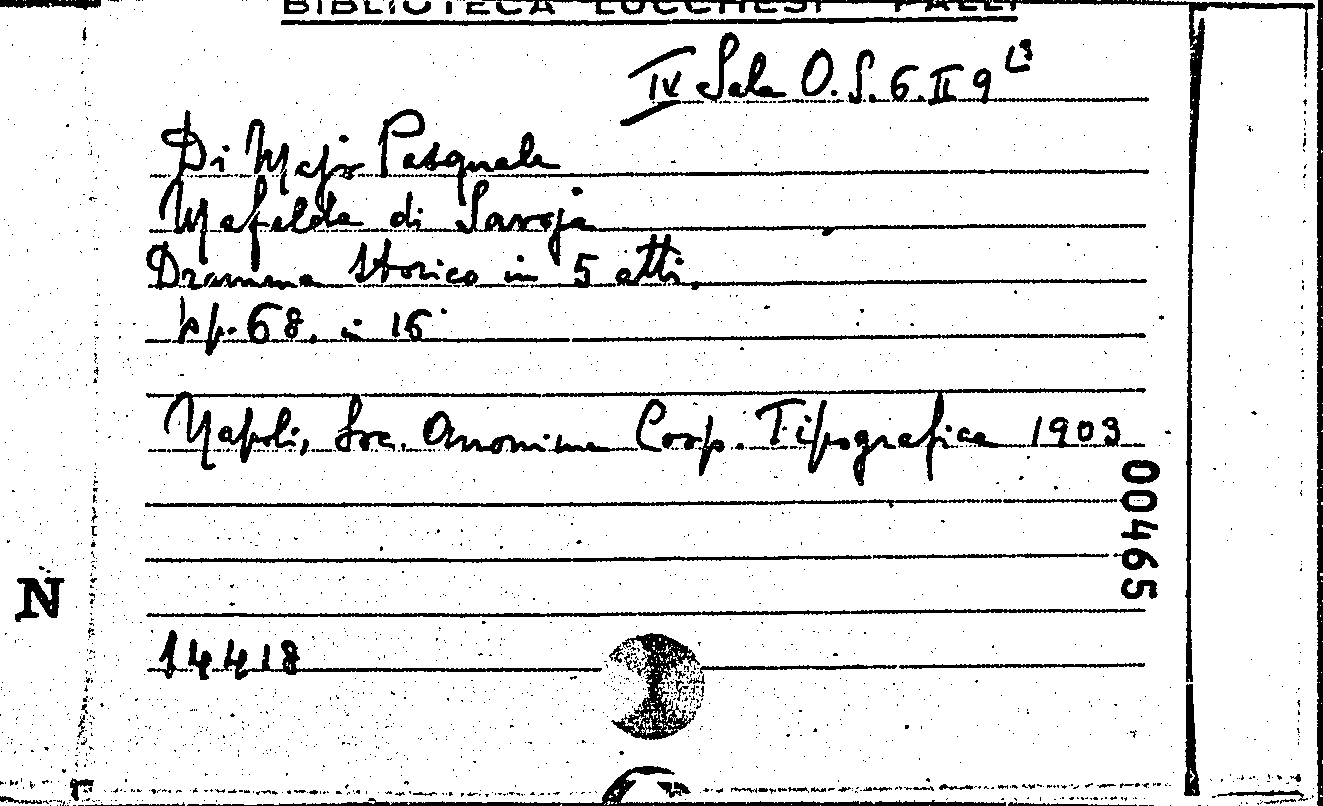 BIBLIOTECA LUCCHESI PALLI
IV Sala O.S.6.II 9 L3
Di Majo Pasquale
Mafalda di Savoja
Dramma storico in 5 atti.
pp. 68. in 16°
Napoli, Soc. Anonima Coop. Tipografica 1903
00465
N
14418